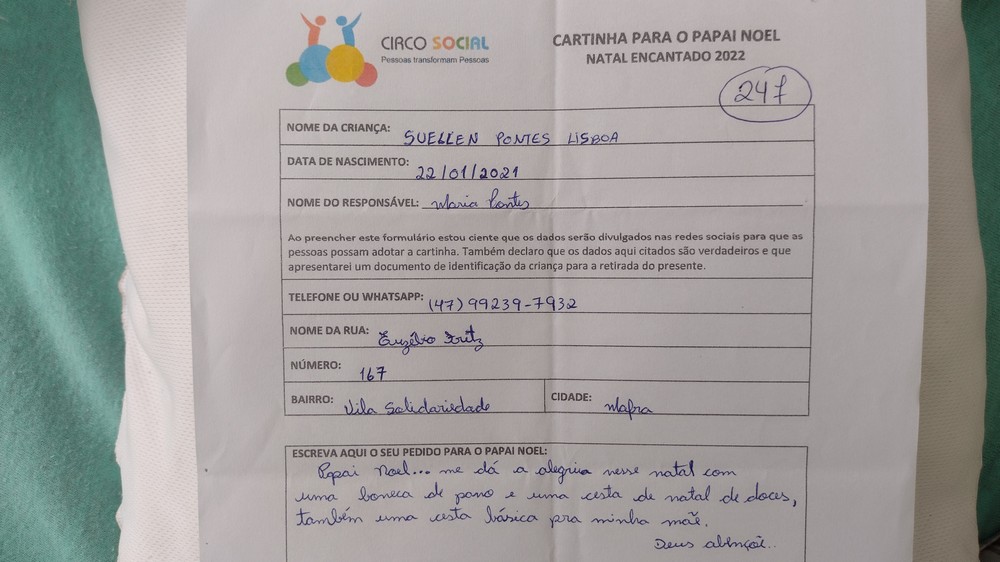 CIRCO SOCIAL
Pessoas transformam Pessoas
CARTINHA PARA O PAPAI NOEL
NATAL ENCANTADO 2022
247
NOME DA CRIANÇA: SUELLEN PONTES LISBOA
DATA DE NASCIMENTO: 22/01/2021
NOME DO RESPONSÁVEL: Maria Pontes
Ao preencher este formulário estou ciente que os dados serão divulgados nas redes sociais para que as
pessoas possam adotar a cartinha. Também declaro que os dados aqui citados são verdadeiros e que
apresentarei um documento de identificação da criança para a retirada do presente.
TELEFONE OU WHATSAPP: (47) 99239-7932
NOME DA RUA: Euzébio
NÚMERO: 167
BAIRRO: Vila Solidariedade CIDADE: Mafra
ESCREVA AQUI O SEU PEDIDO PARA O PAPAI NOEL:
Papai Noel... me dá a alegria nesse natal com
uma boneca de pano e uma cesta de natal de doces,
também uma cesta básica pra minha mãe.
Deus abençõe..